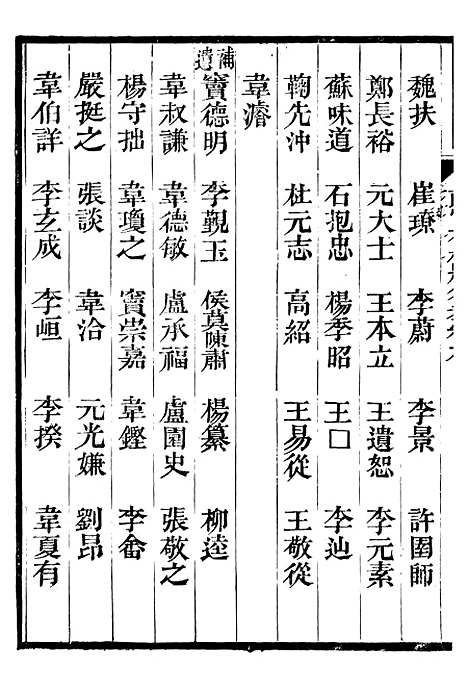 魏扶 崔璙 李蔚 李景 許圉師
鄭長裕 元大士 王本立 王遺恕 李元素
蘇味道 石抱忠 楊季昭 王□ 李迪
鞠先沖 杜元志 高紹 王易從 王敬從
韋濬
補遺 竇德明 李覲王 侯莫陳肅 楊纂 柳逵
韋叔謙 韋德敏 盧承福 盧圄史 張敬之
楊守拙 韋瓊之 竇崇嘉 韋鏗 李畬
嚴挺之 張談 韋洽 元光嫌 劉昂
韋伯詳 李玄成 李峘 李揆 韋夏有